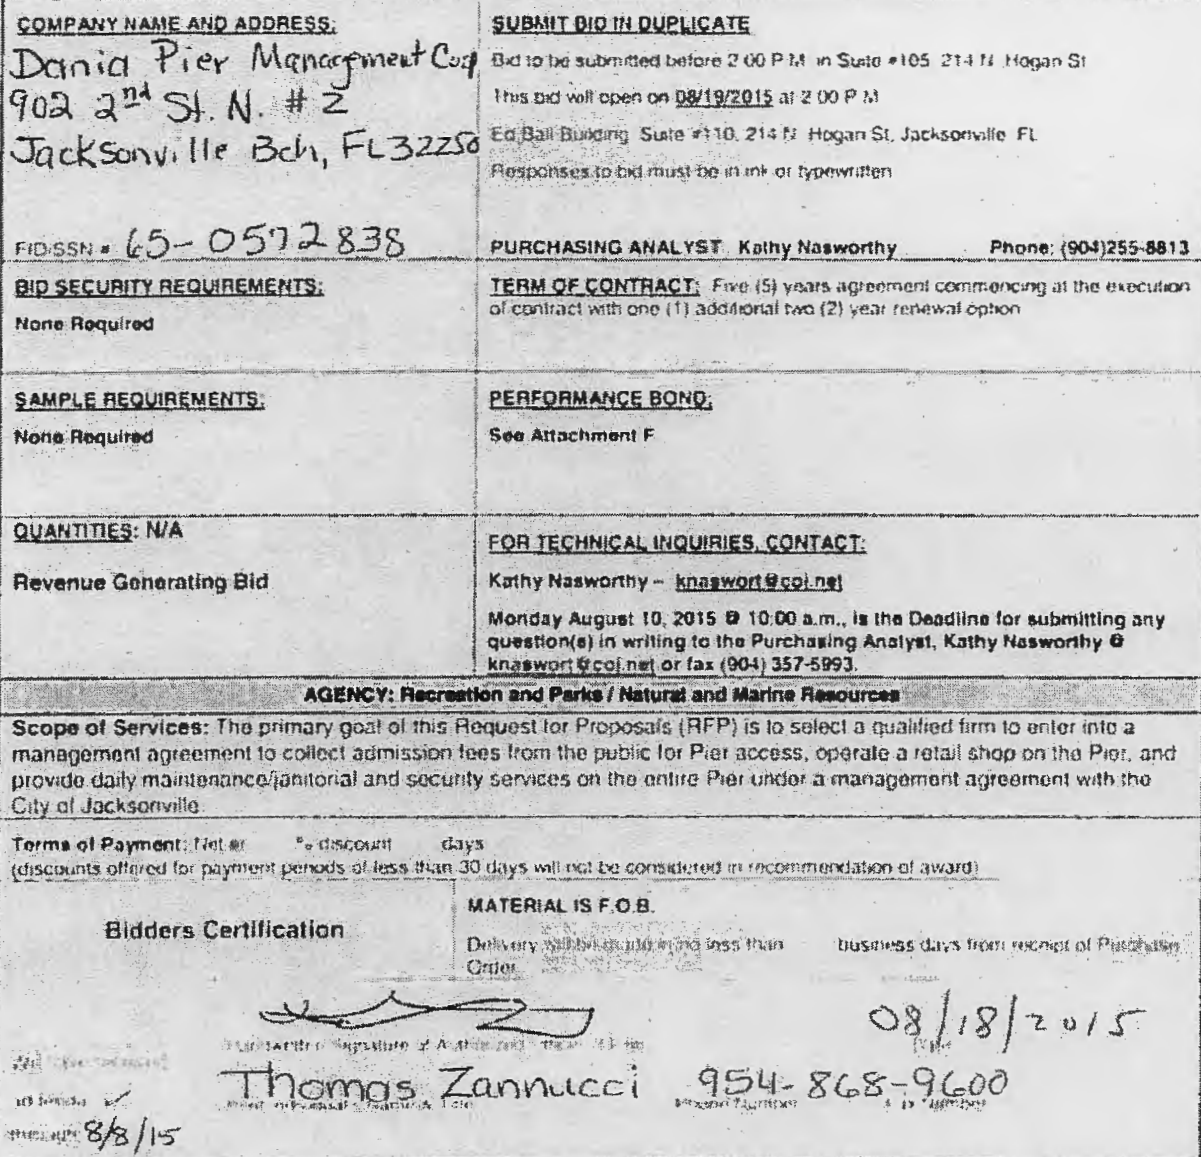 COMPANY NAME AND ADDRESS:
Dania Pier Management Corp
902 2nd St. N. # 2
Jacksonville Bch, FL 32250
FID/SSN # 65-0572838
SUBMIT BID IN DUPLICATE
Bid to be submitted before 2:00 P.M. in Suite #105 214 N. Hogan St
This bid will open on 08/19/2015 at 2:00 P.M
Ed Ball Building Suite #110, 214 N. Hogan St, Jacksonville FL
Responses to bid must be in ink or typewritten
PURCHASING ANALYST Kathy Nasworthy Phone: (904)255-8813
BID SECURITY REQUIREMENTS:
None Required
TERM OF CONTRACT: Five (5) years agreement commencing at the execution
of contract with one (1) additional two (2) year renewal option
SAMPLE REQUIREMENTS:
None Required
PERFORMANCE BOND:
See Attachment F
QUANTITIES: N/A
Revenue Generating Bid
FOR TECHNICAL INQUIRIES, CONTACT:
Kathy Nasworthy – knaswort@coj.net
Monday August 10, 2015 @ 10:00 a.m., is the Deadline for submitting any
question(s) in writing to the Purchasing Analyst, Kathy Nasworthy @
knaswort@coj.net or fax (904) 357-5993.
AGENCY: Recreation and Parks / Natural and Marine Resources
Scope of Services: The primary goal of this Request for Proposals (RFP) is to select a qualified firm to enter into a
management agreement to collect admission fees from the public for Pier access, operate a retail shop on the Pier, and
provide daily maintenance/janitorial and security services on the entire Pier under a management agreement with the
City of Jacksonville.
Terms of Payment: Net or % discount days
(discounts offered for payment periods of less than 30 days will not be considered in recommendation of award)
Bidders Certification
MATERIAL IS F.O.B.
Delivery will be made in no less than business days from receipt of Purchase
Order
08/18/2015
Handwritten Signature of
Date
Thomas Zannucci 954-868-9600
Phone Number
8/8/15